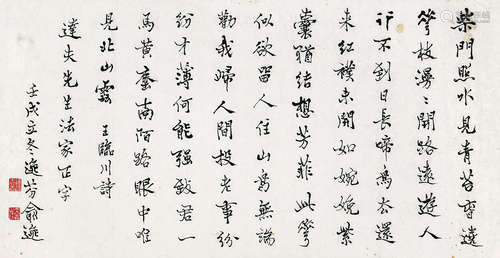 柴門照水見青苔春遶
花枝漫〻開路遠遊人
行不到日長啼鳥去還
來紅襆未開如婉娩紫
囊猶結想芳菲此花
似欲留人住山鳥無端
勸我歸人間投老事紛
紛才薄何能強致君一
馬黃塵南陌路眼中唯
見北山雲 王臨川詩
達夫先生法家正字
壬戌立冬逸芬俞逸